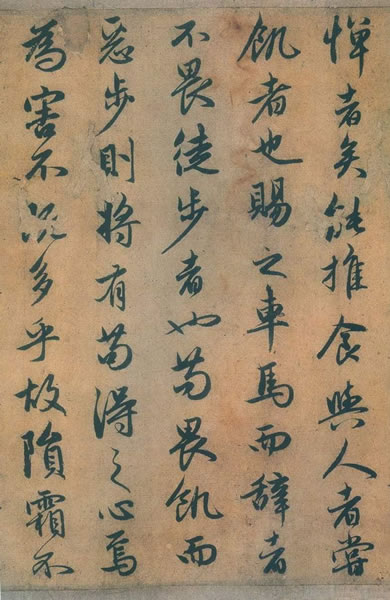 憚者矣能推食與人者嘗
飢者也賜之車馬而辭者
不畏徒步者也苟畏飢而
惡步則將有苟得之心焉
為害不既多乎故隕霜不